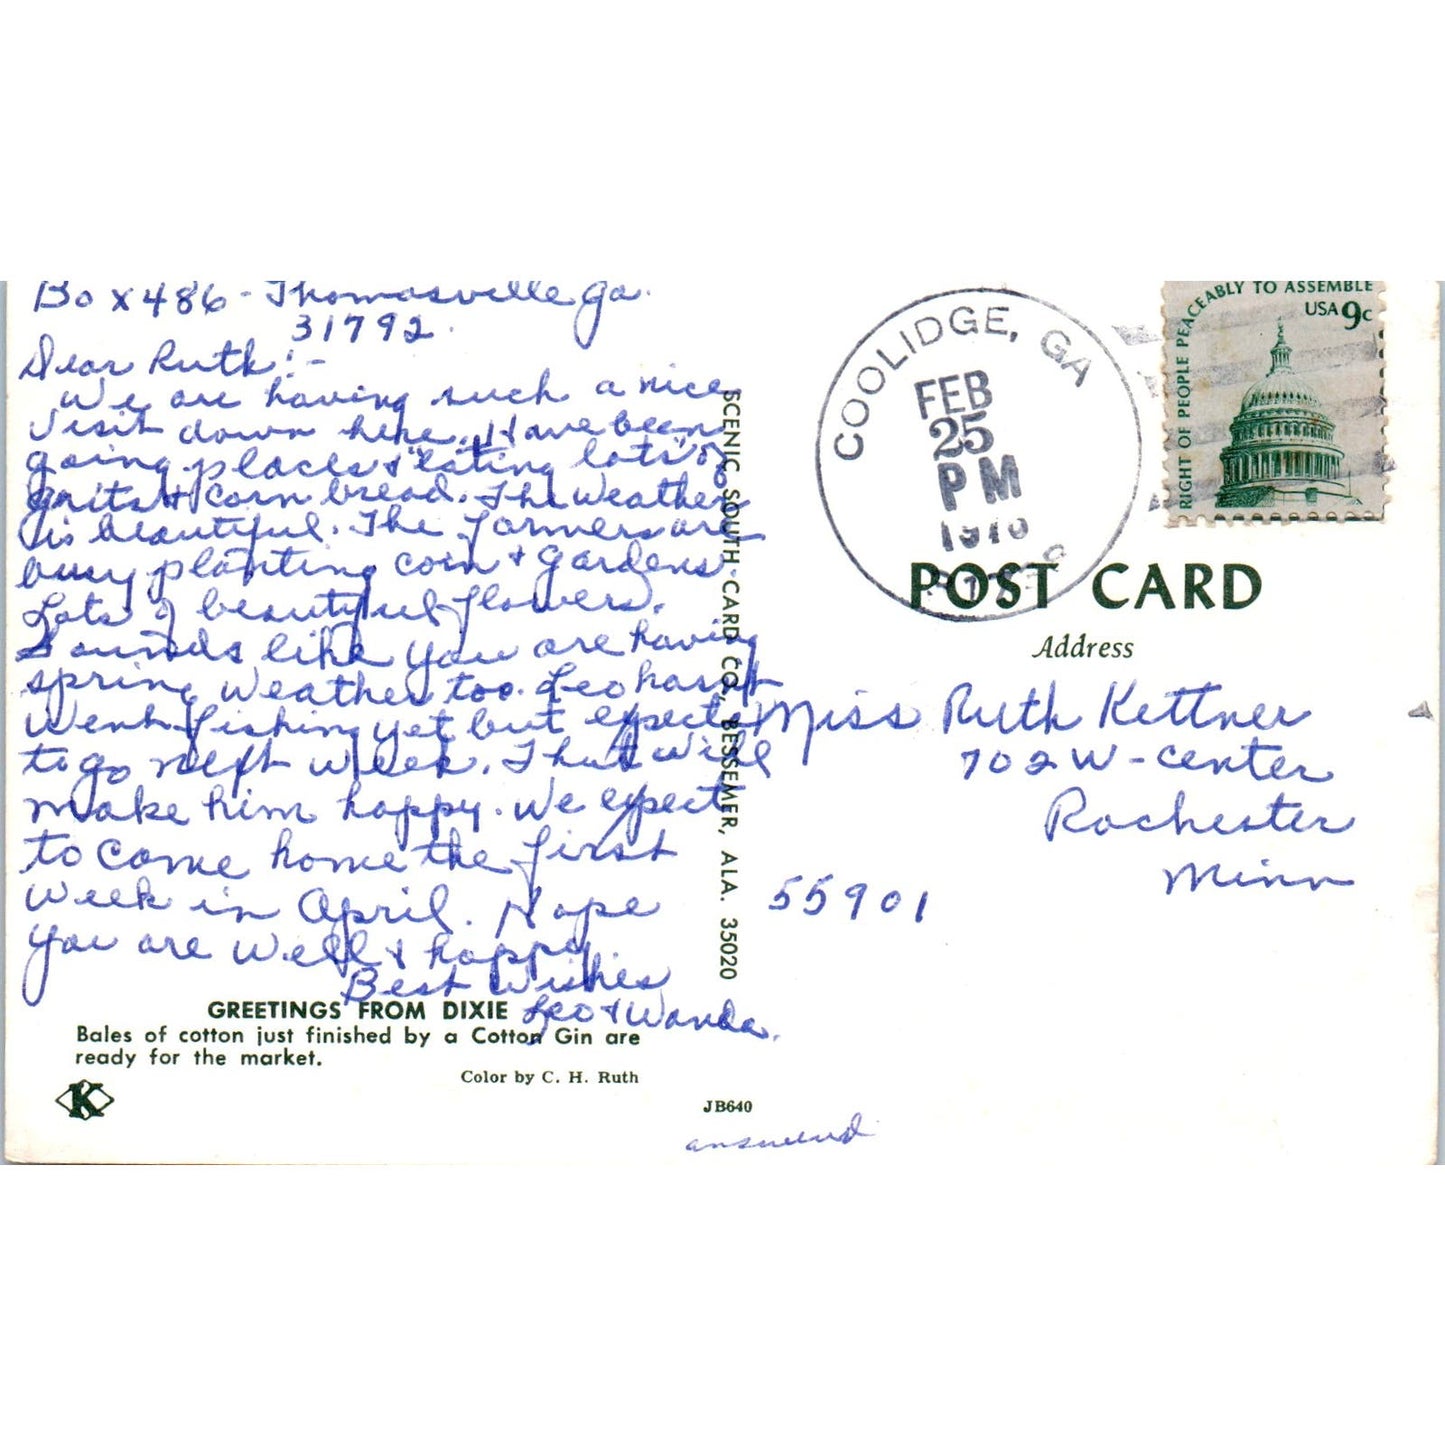 Box 486 - Thomasville Ga.
31792.
Dear Ruth:-
We are having such a nice
visit down here. Have been
going places & "eating lots" of
grits & corn bread. The weather
is beautiful. The farmers are
busy planting corn & gardens.
Lots of beautiful flowers.
Sounds like you are having
spring weather too. Leo hasn't
went fishing yet but expects
to go next week. That will
make him happy. We expect
to come home the first
week in April. Hope
you are well & happy.
Best Wishes
Leo & Wanda.
GREETINGS FROM DIXIE
Bales of cotton just finished by a Cotton Gin are
ready for the market.
Color by C. H. Ruth
K
SCENIC SOUTH CARD CO., BESSEMER, ALA. 35020
JB640
answered
COOLIDGE, GA
FEB
25
PM
RIGHT OF PEOPLE PEACEABLY TO ASSEMBLE
USA 9c
POST CARD
Address
Miss Ruth Kettner
702 W-Center
Rochester
Minn
55901